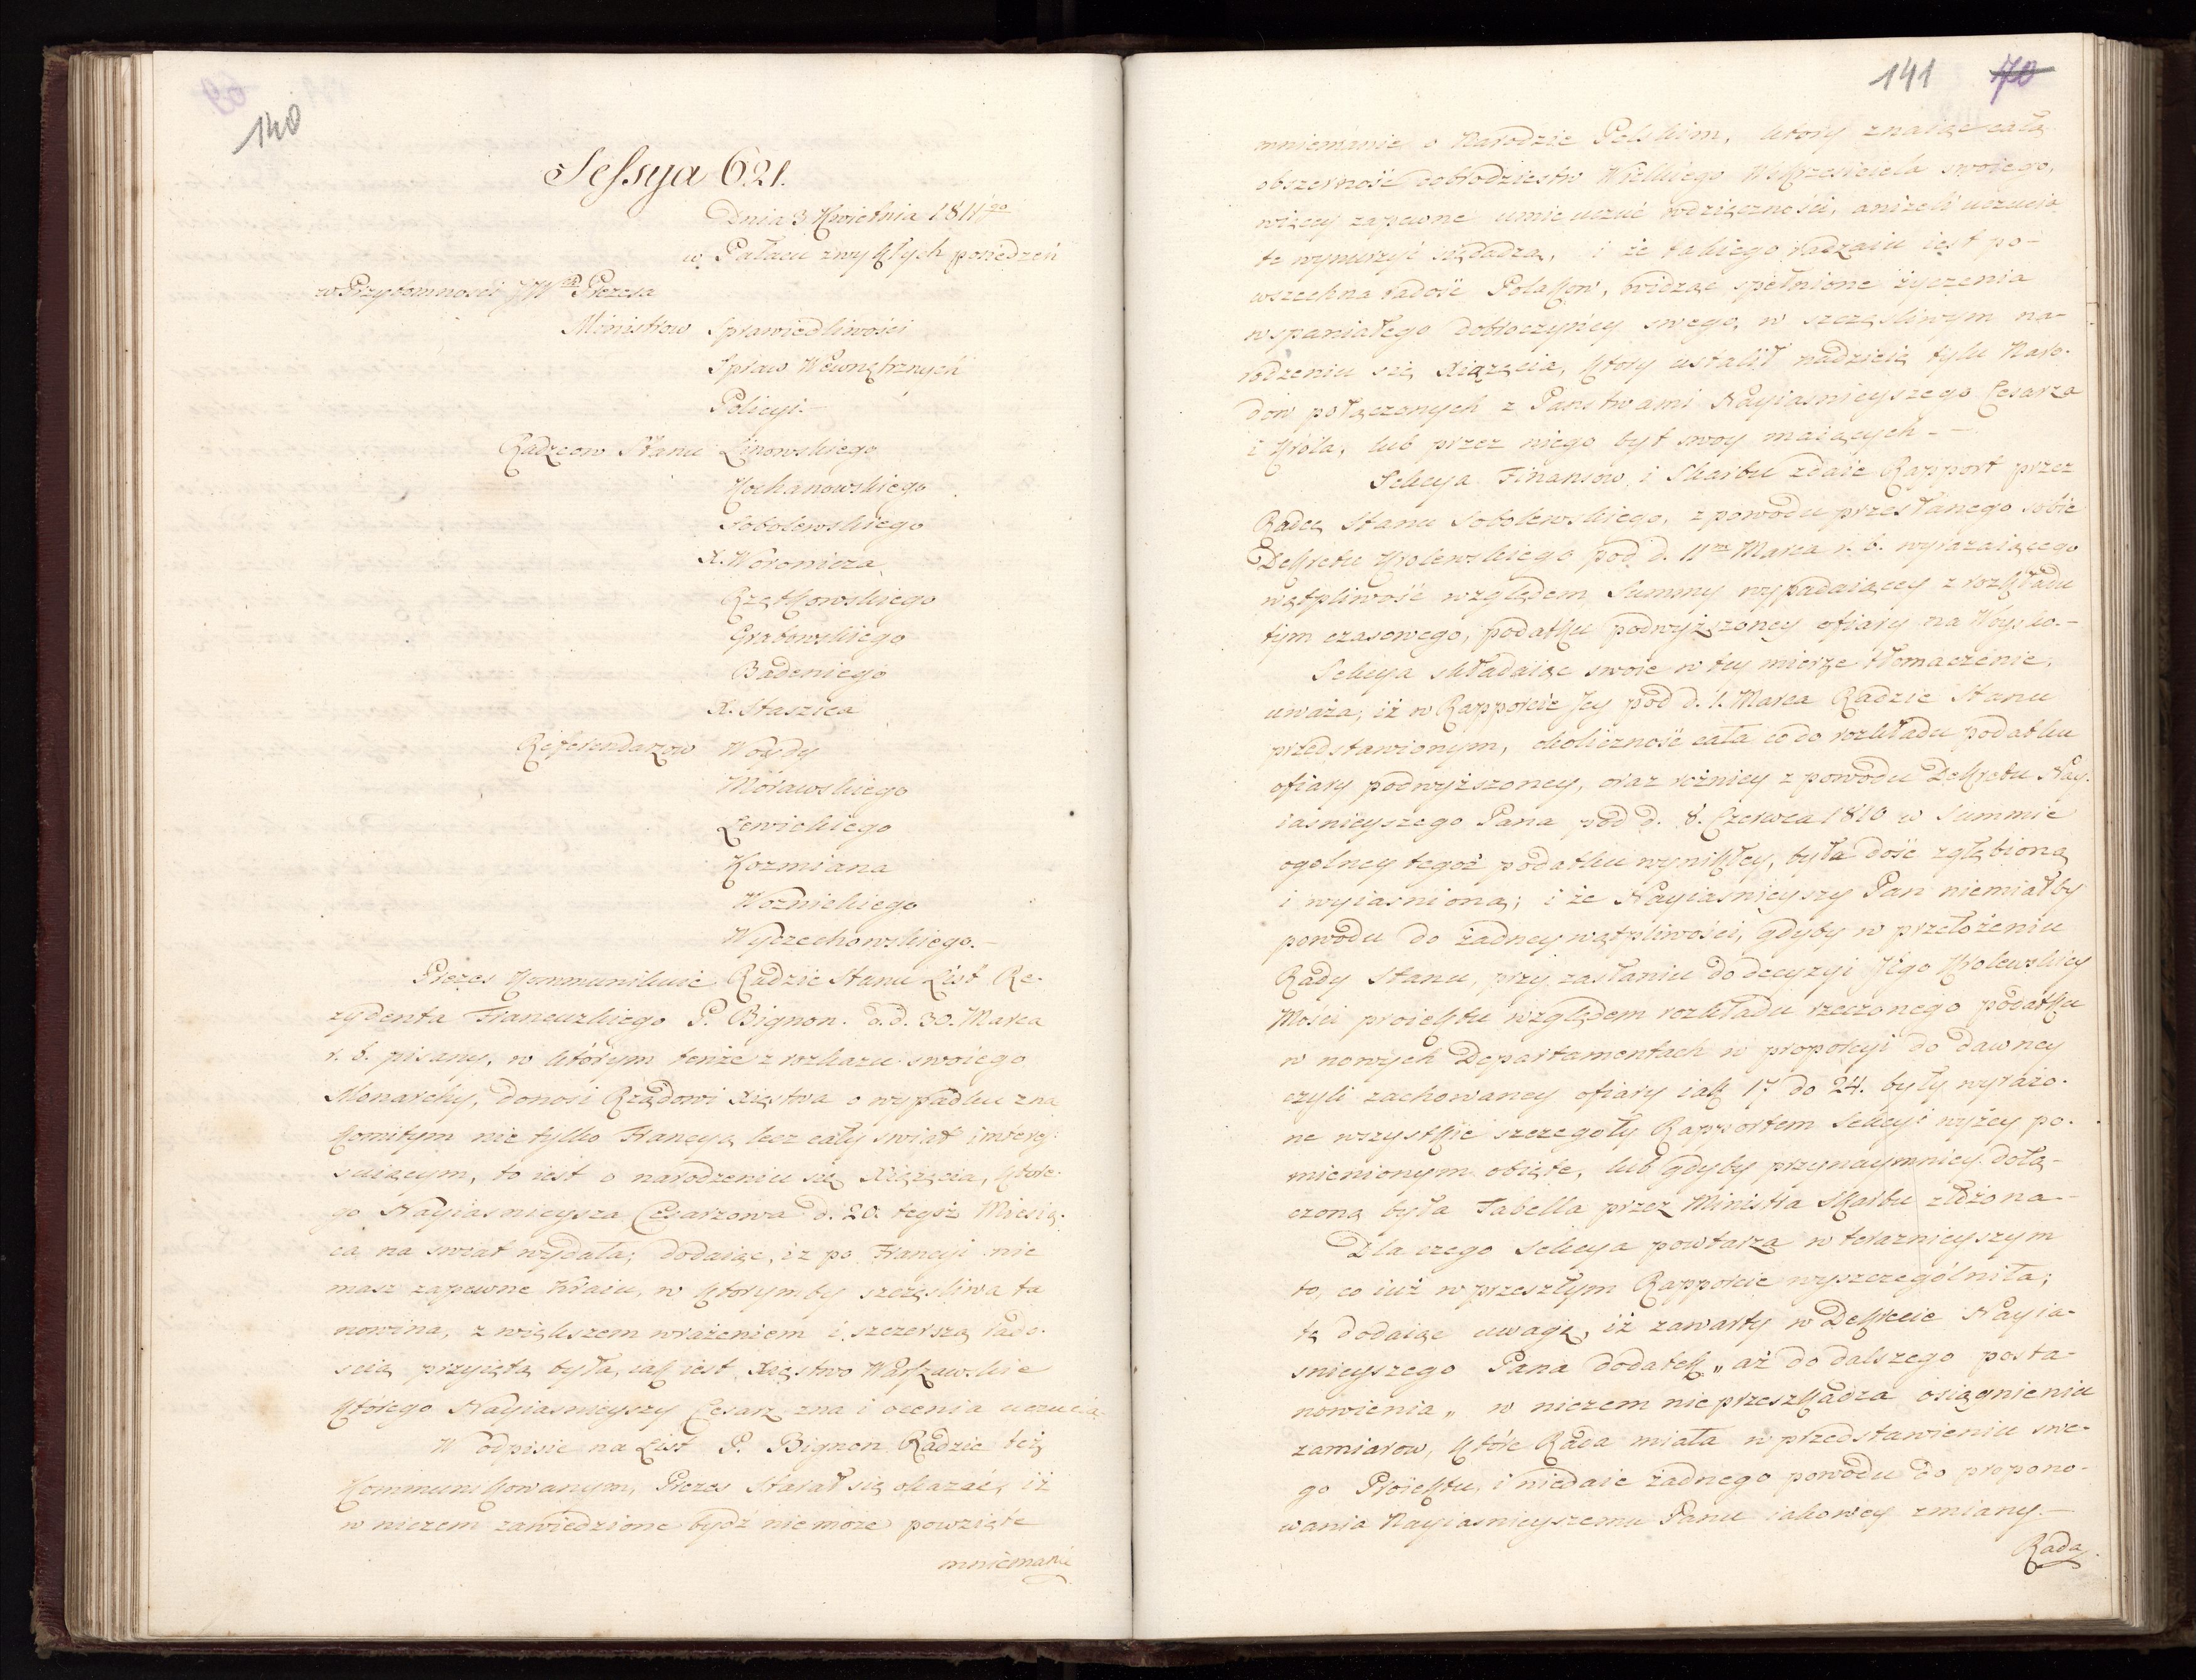 140
Sessya 621.
Dnia 3 Kwietnia 1811go
w Pałacu zwykłych posiedzeń
w Przytomnosci JWgo Prezesa
Ministrow Sprawiedliwości
Spraw Wewnętrznych
Policyi.—
Radzcow Stanu Linowskiego
Kochanowskiego
Sobolewskiego
X. Woronicza
Rzętkowskiego
Grabowskiego
Badeniego
X. Staszica
Referendarzow Woydy
Morawskiego
Lewickiego
Kozmiana
Woznickiego
Wyczechowskiego.—
Prezes Kommunikuie Radzie Stanu List Re-
zydenta Francuzkiego P. Bignon. d. d. 30. Marca
r. b. pisany, w którym tenże z rozkazu swoiego
Monarchy, donosi Rządowi Xięstwa o wypadku zna
komitym nie tylko Francyą lecz cały swiat interes-
suiącym, to iest o narodzeniu się Xiążęcia, które-
go Nayiasnieysza Cesarzowa d. 20. tegoż Miesią-
ca na swiat wydała; dodaiąc, iż po Francyi nie
masz zapewne Kraiu, w ktorymby szczęsliwa ta
nowina, z większem wrażeniem i szczerszą rado-
scią przyięta była, iak iest Xięstwo Warszawskie
którego Nayiasnieyszy Cesarz zna i ocenia uczucia
W odpisie na List P. Bignon Radzie też
Kommunikowanym, Prezes starał się okazać, iż
w niczem zawiedzione bydź nie może powzięte
mniemanie
141 70
mniemanie o Narodzie Polskim, ktory znaiąc całą
obszerność dobrodzieystw Wielkiego Wskrzesiciela swoiego,
więcey zapewne umie uczuć wdzięczności, aniżeli uczucia
te wynurzyć zdadzą, i że takiego rodzaiu iest po-
wszechna radość Polakow, widząc spełnione życzenia
wspaniałego dobroczyńcy swego, w szczęśliwym na-
rodzeniu się Xiążęcia, ktory ustalił nadzieię tylu Naro-
dow połączonych z Panstwami Nayiasnieyszego Cesarza
i Króla, lub przez niego byt swoy maiących.—
Sekcya Finansow i Skarbu zdaie Rapport przez
Radcę Stanu Sobolewskiego, z powodu przesłanego sobie
Dekretu Krolewskiego pod d. 11m Marca r. b. wyrażaiącego
wątpliwość względem Summy wypadaiącey z rozkładu
tymczasowego, podatku podwyższoney ofiary na Woysko.—
Sekcya składaiąc swoie w tey mierze tłomaczenie,
uważa, iż w Rapporcie Jey pod d. 1. Marca Radzie Stanu
przedstawionym, okoliczność cała co do rozkładu podatku
ofiary podwyższoney, oraz rożnicy z powodu Dekretu Nay-
iasnieyszego Pana pod d. 8. Czerwca 1810 w Summie
ogolney tegoż podatku wynikłey, była dość zgłębioną
i wyiasnioną; i że Nayiasnieyszy Pan niemiałby
powodu do żadney wątpliwości, gdyby w przełożeniu
Rady Stanu, przy zasłaniu do decyzyi Jego Krolewskiey
Mości proiektu względem rozkładu rzeczonego podatku
w nowych Departamentach w proporcyi do dawney
czyli zachowaney ofiary iak 17 do 24. były wyrażo-
ne wszystkie szczegoły Rapportem Sekcyi wyżey po-
mienionym obięte, lub gdyby przynaymniey dołą-
czoną była Tabella przez Ministra Skarbu złożona.—
Dla czego Sekcya powtarza w terazniejszym
to, co iuż w przeszłym Rapporcie wyszczególniła;
tę dodaiąc uwagę, iż zawarty w Dekrecie Nayia-
snieyszego Pana dodatek „aż do dalszego posta-
nowienia„ w niczem nie przeszkadza osiągnieniu
zamiarow, które Rada miała w przedstawieniu swe-
go Proiektu, i niedaie żadnego powodu do propono-
wania Nayiasnieyszemu Panu iakowey zmiany.—
Rada